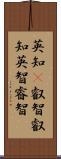 英知︵叡智叡
知英智睿智